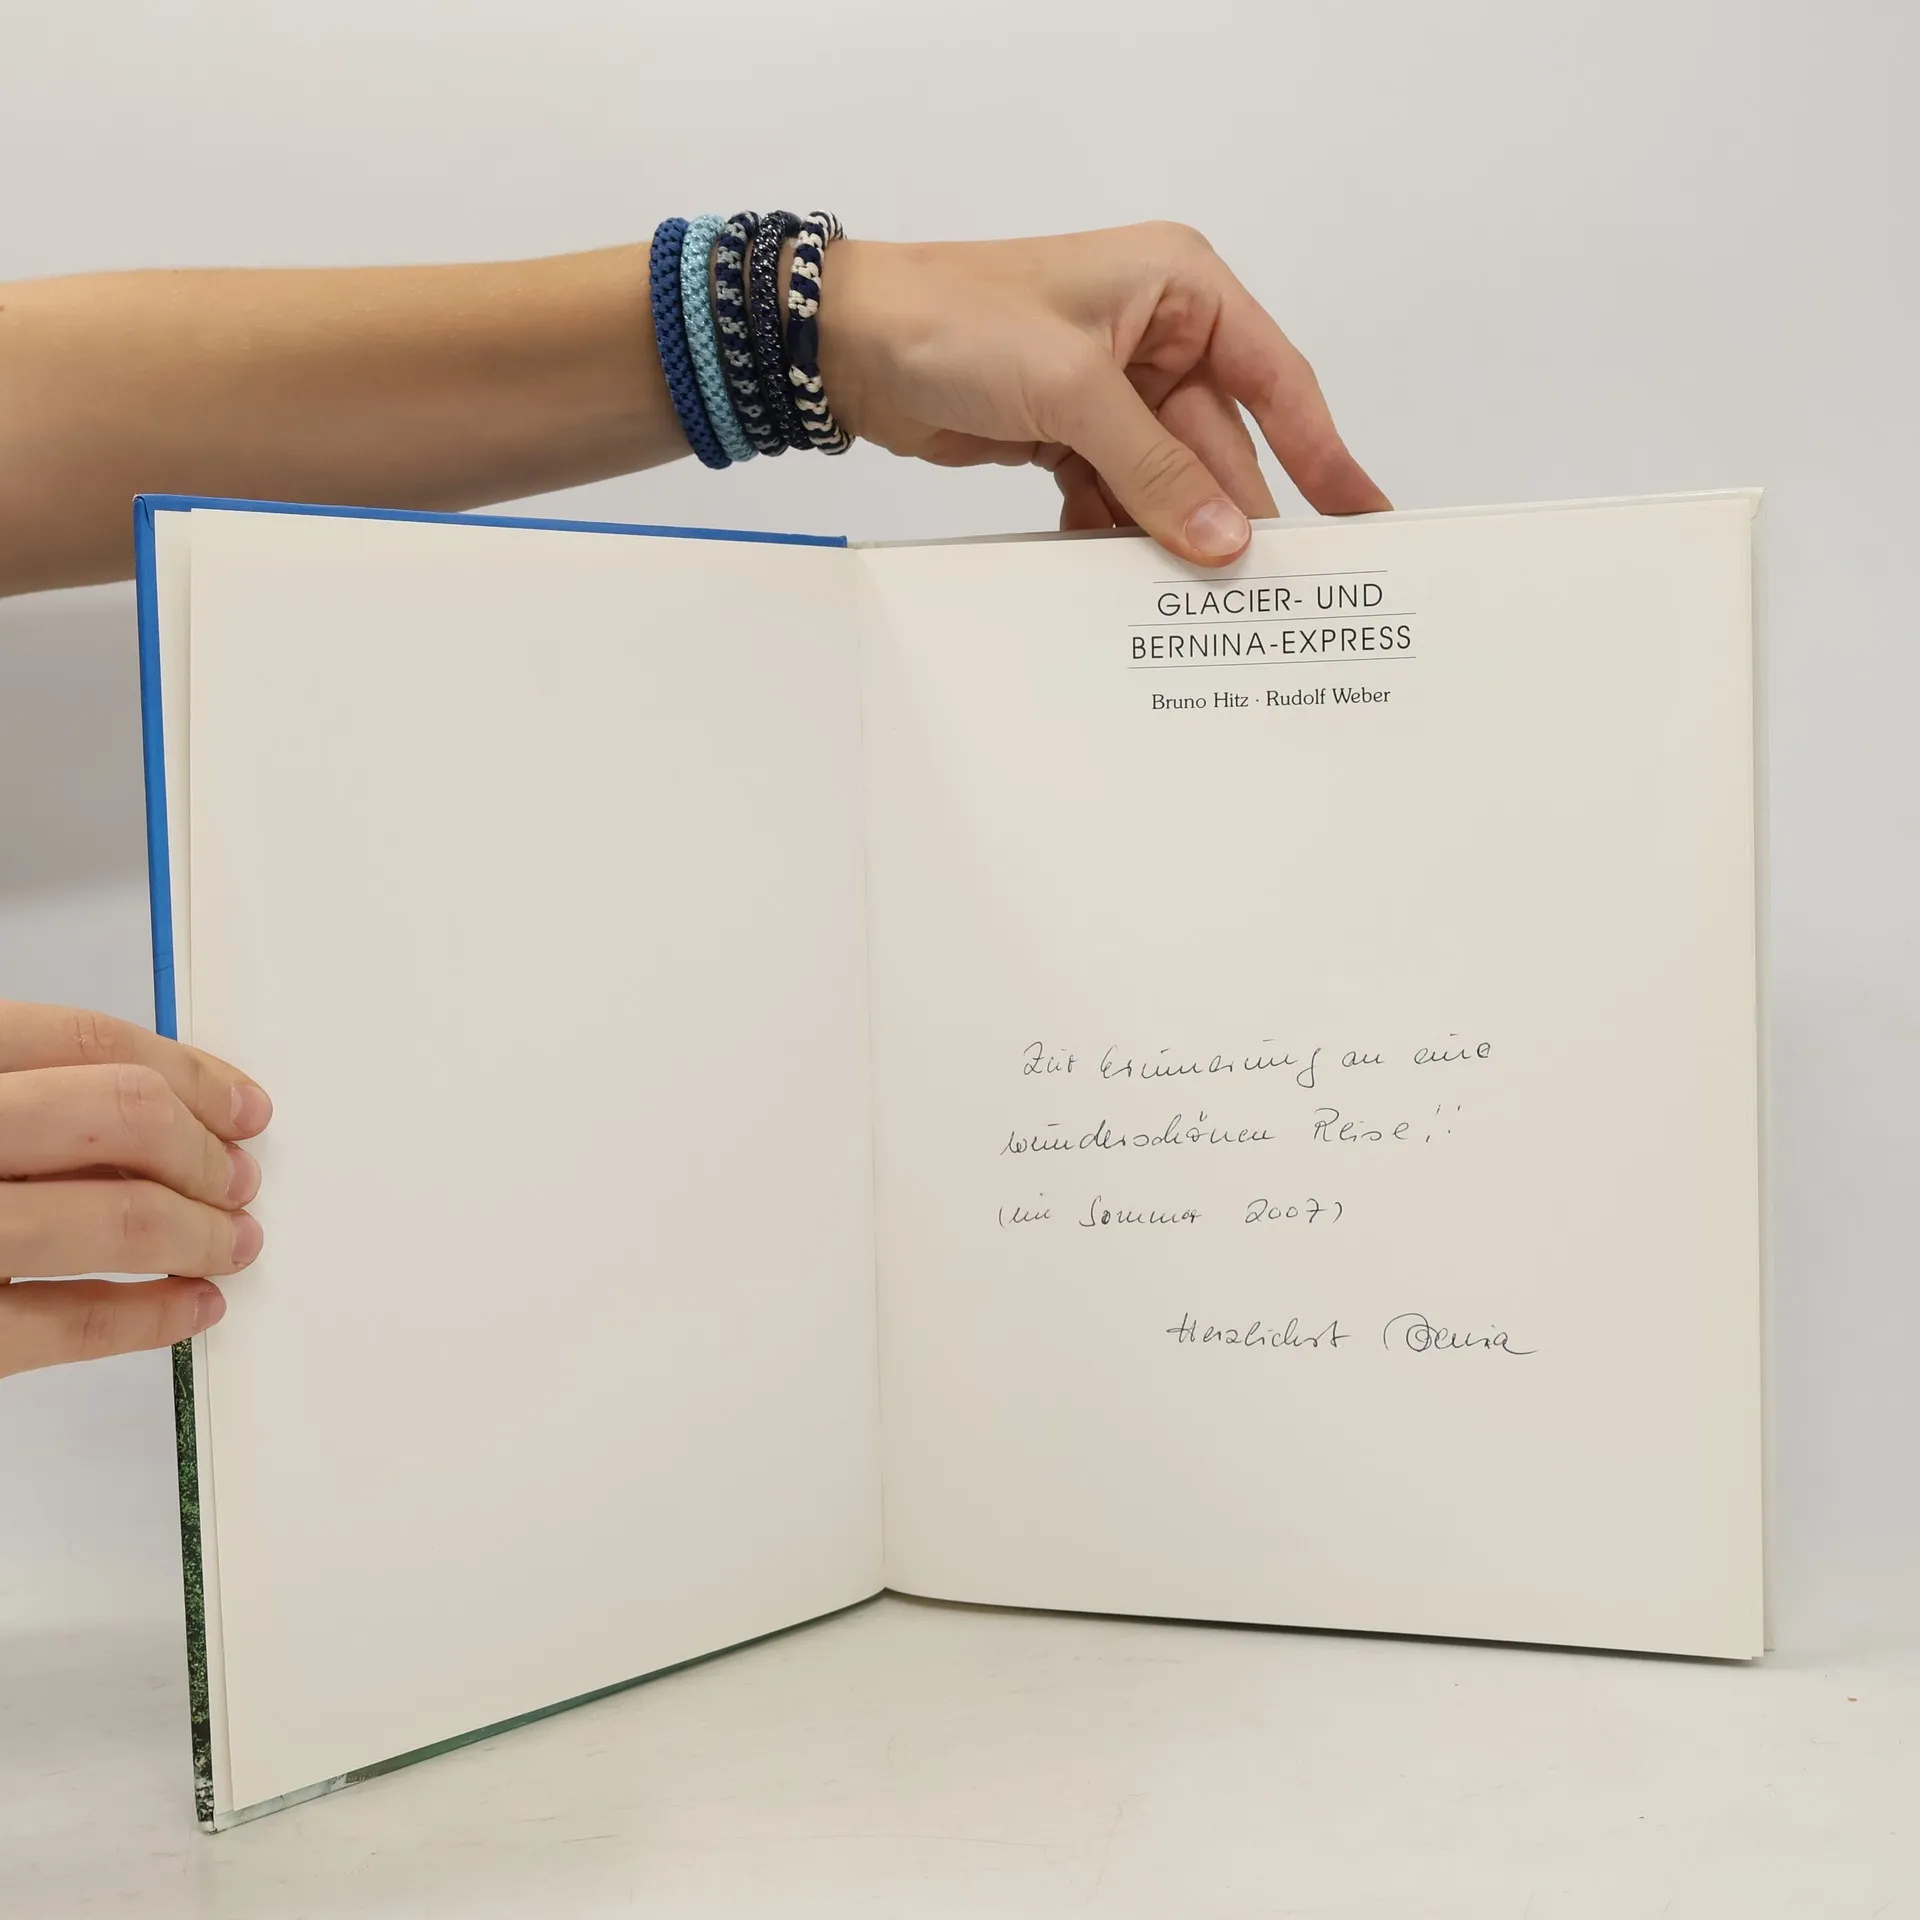 GLACIER- UND
BERNINA-EXPRESS
Bruno Hitz · Rudolf Weber
Zur Erinnerung an eine
wunderschönen Reise!!
(im Sommer 2007)
Herzlichst